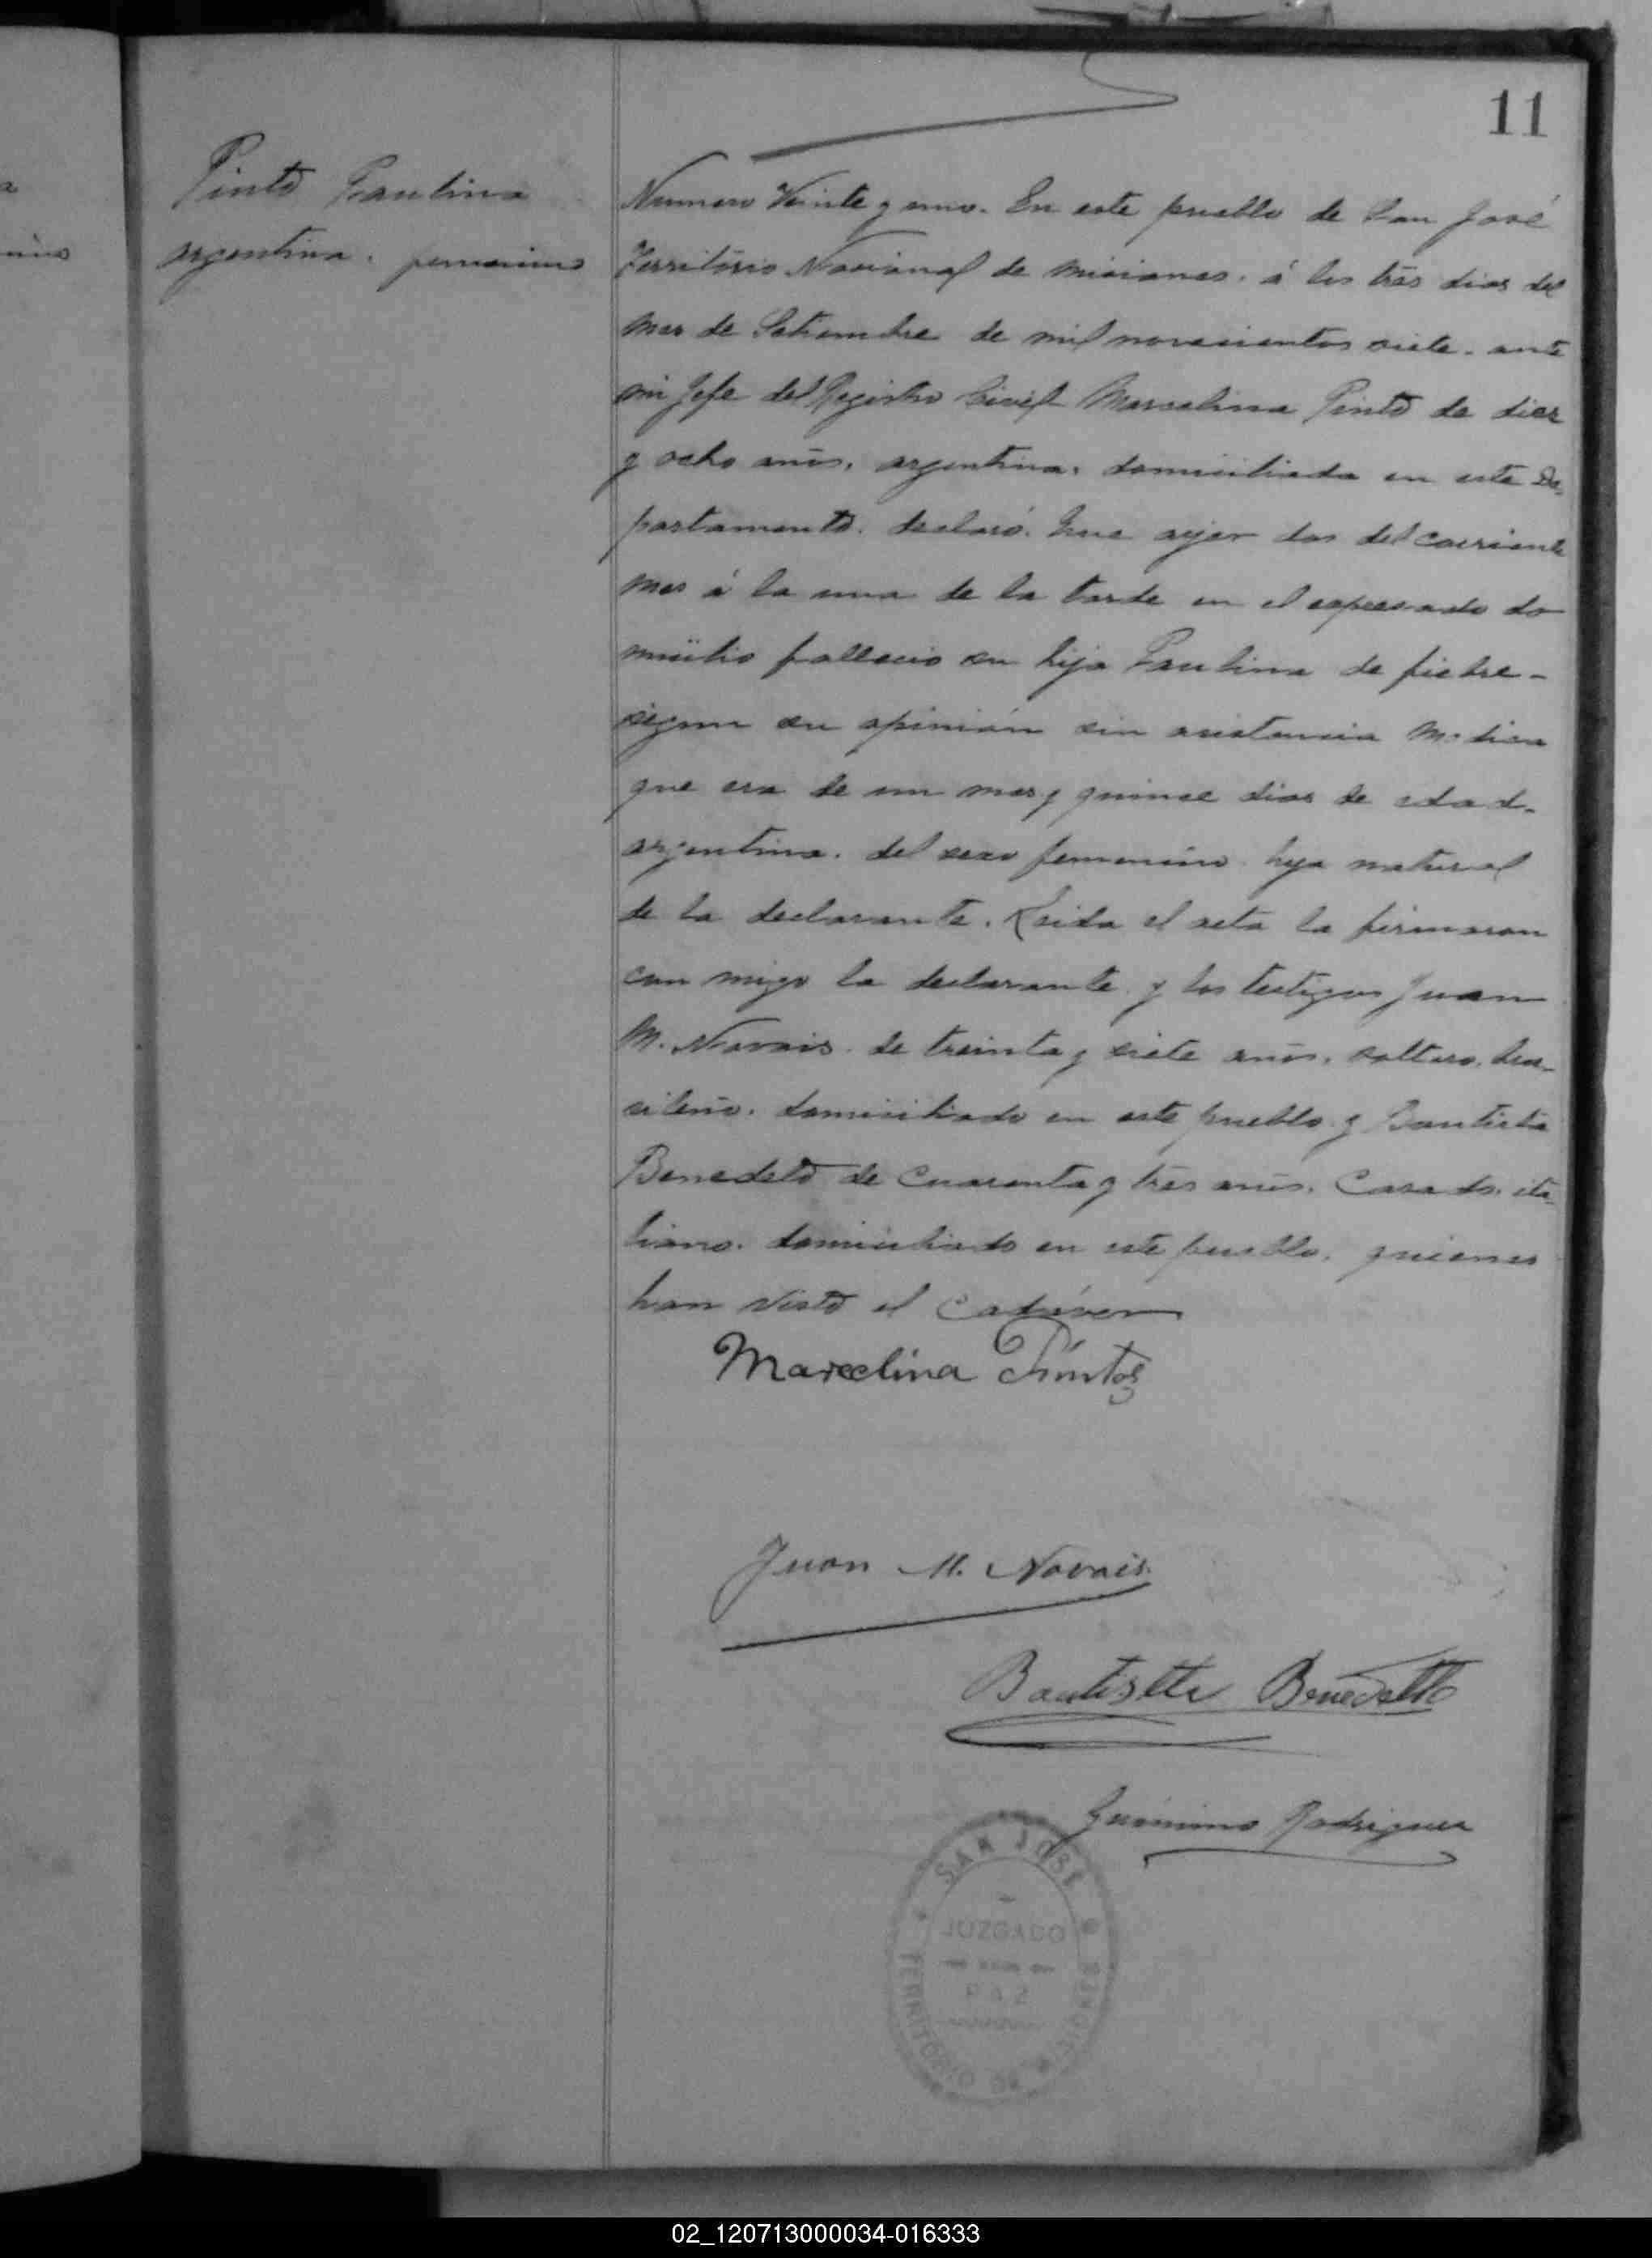 11
Pinto Paulina
argentina. femenino
Numero Veinte y uno. En este pueblo de San José
Territorio Nacional de Misiones. á los tres dias del
mes de Setiembre de mil novecientos siete. ante
mi Jefe del Registro Civil Marcelina Pinto de diez
y ocho años. argentina. domiciliada en este De-
partamento. declaró. Que ayer dos del corriente
mes á la una de la tarde en el expresado do
micilio fallecio su hija Paulina de fiebre-
segun su opinión sin asistencia Medica
que era de un mes y quince dias de edad-
argentina. del sexo femenino. hija natural
de la declarante. Leida el acta la firmaron
con migo la declarante y los testigos Juan
M. Novais. de treinta y siete años. soltero. bra-
sileño. domiciliado en este pueblo y Bautista
Benedeto de Cuarenta y tres años. Casado. ita-
liano. domiciliado en este pueblo. quienes
han visto el Cadáver
Marcelina Pinto
Juan M. Novais.
Bautista Benedetto
Gerónimo Rodriguez
SAN JOSÉ
JUZGADO
PAZ
TERRITORIO DE MISIONES
02_120713000034-016333